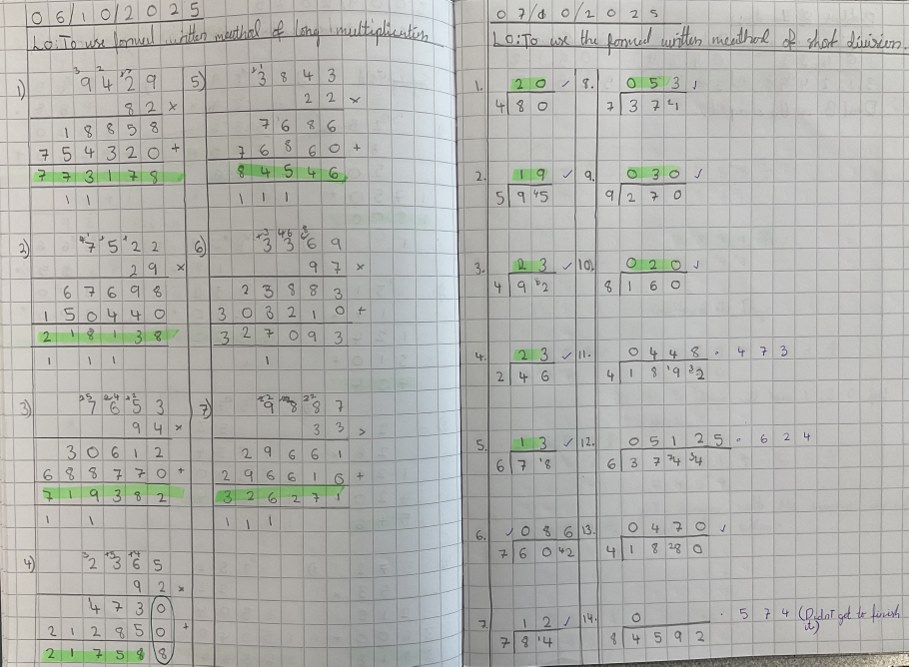 06/10/2025
LO:To use formed written meathod of long multiplication
1)
9429
82 ×
18858
754320 +
773178
1 1
2)
7522
29 ×
67698
150440
218138
1 1 1
3)
7653
94 ×
30612
688770 +
719382
1 1
4)
2365
92 ×
4730
212850 +
217588
5)
3843
22 ×
7686
76860 +
84546
1 1 1
6)
3369
97 ×
23883
303210 +
327093
1
7)
9887
33 ×
29661
296610 +
326271
1 1 1
07/10/2025
LO:To use the formed written meathod of short division.
1. 20 ✓
4 | 80
2. 19 ✓
5 | 9 45
3. 23 ✓
4 | 9 12
4. 23 ✓
2 | 46
5. 13 ✓
6 | 7 18
6. ✓ 086
7 | 60 42
7. 12 ✓
7 | 8 14
8. 053 ✓
7 | 37 21
9. 030 ✓
9 | 270
10. 020 ✓
8 | 160
11. 0448 · 473
4 | 18 19 32
12. 05125 · 624
6 | 37 74 34
13. 0470 ✓
4 | 18 28 0
14. 0 · 574 (Didn't get to finish it)
8 | 4592